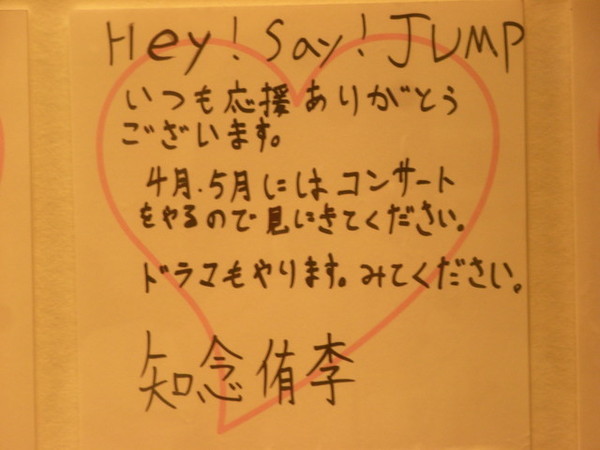 Hey! Say! JUMP
いつも応援ありがとう
ございます。
4月.5月にはコンサート
をやるので見にきてください。
ドラマもやります。みてください。
知念侑李